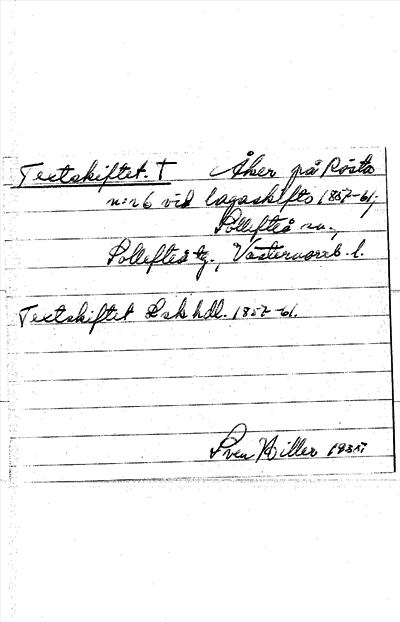 Teetskiftet. † Åker på Rösta
n:r 6 vid lagaskifts 1857-61,
Sollefteå sn.,
Sollefteå tg., Västernorrb. l.
Teetskiftet Lsk hdl. 1857-61.
Sven Hiller 1935